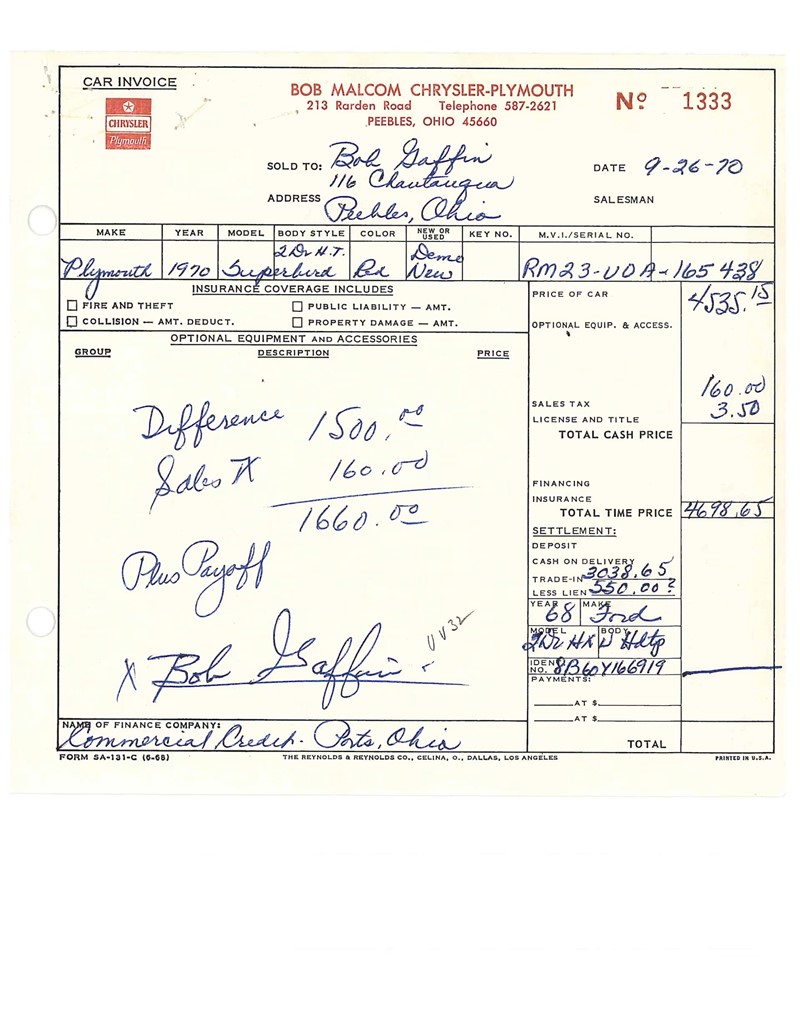 CAR INVOICE
CHRYSLER
Plymouth
BOB MALCOM CHRYSLER-PLYMOUTH
213 Rarden Road Telephone 587-2621
PEEBLES, OHIO 45660
Nº 1333
SOLD TO: Bob Gaffin
116 Chautauqua
ADDRESS Peebles, Ohio
DATE 9-26-70
SALESMAN
MAKE YEAR MODEL BODY STYLE COLOR NEW OR USED KEY NO. M.V.I./SERIAL NO.
Plymouth 1970 Superbird 2 Dr H.T. Red Demo New RM23-UOA-165438
INSURANCE COVERAGE INCLUDES
FIRE AND THEFT PUBLIC LIABILITY — AMT.
COLLISION — AMT. DEDUCT. PROPERTY DAMAGE — AMT.
OPTIONAL EQUIPMENT AND ACCESSORIES
GROUP DESCRIPTION PRICE
Difference 1500.00
Sales TX 160.00
1660.00
Plus Payoff
X Bob Gaffin
UV32
NAME OF FINANCE COMPANY:
Commercial Credit - Ports, Ohio
PRICE OF CAR 4535.15
OPTIONAL EQUIP. & ACCESS.
SALES TAX 160.00
LICENSE AND TITLE 3.50
TOTAL CASH PRICE
FINANCING
INSURANCE
TOTAL TIME PRICE 4698.65
SETTLEMENT:
DEPOSIT
CASH ON DELIVERY
TRADE-IN 3038.65
LESS LIEN 550.00?
YEAR 68 MAKE Ford
MODEL 2Dr BODY Hdtp
IDEN. NO. 8B60Y166919
PAYMENTS:
AT $
AT $
TOTAL
FORM SA-131-C (6-68) THE REYNOLDS & REYNOLDS CO., CELINA, O., DALLAS, LOS ANGELES PRINTED IN U.S.A.